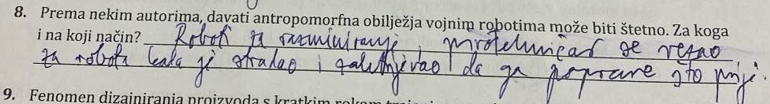 8. Prema nekim autorima, davati antropomorfna obilježja vojnim robotima može biti štetno. Za koga
i na koji način? Robot za razminiranje, mrotehničar se vezao
za robota kada je stradao i zahtijevao da ga poprave što prije.
9. Fenomen dizajniranja proizvoda s kratkim rokom